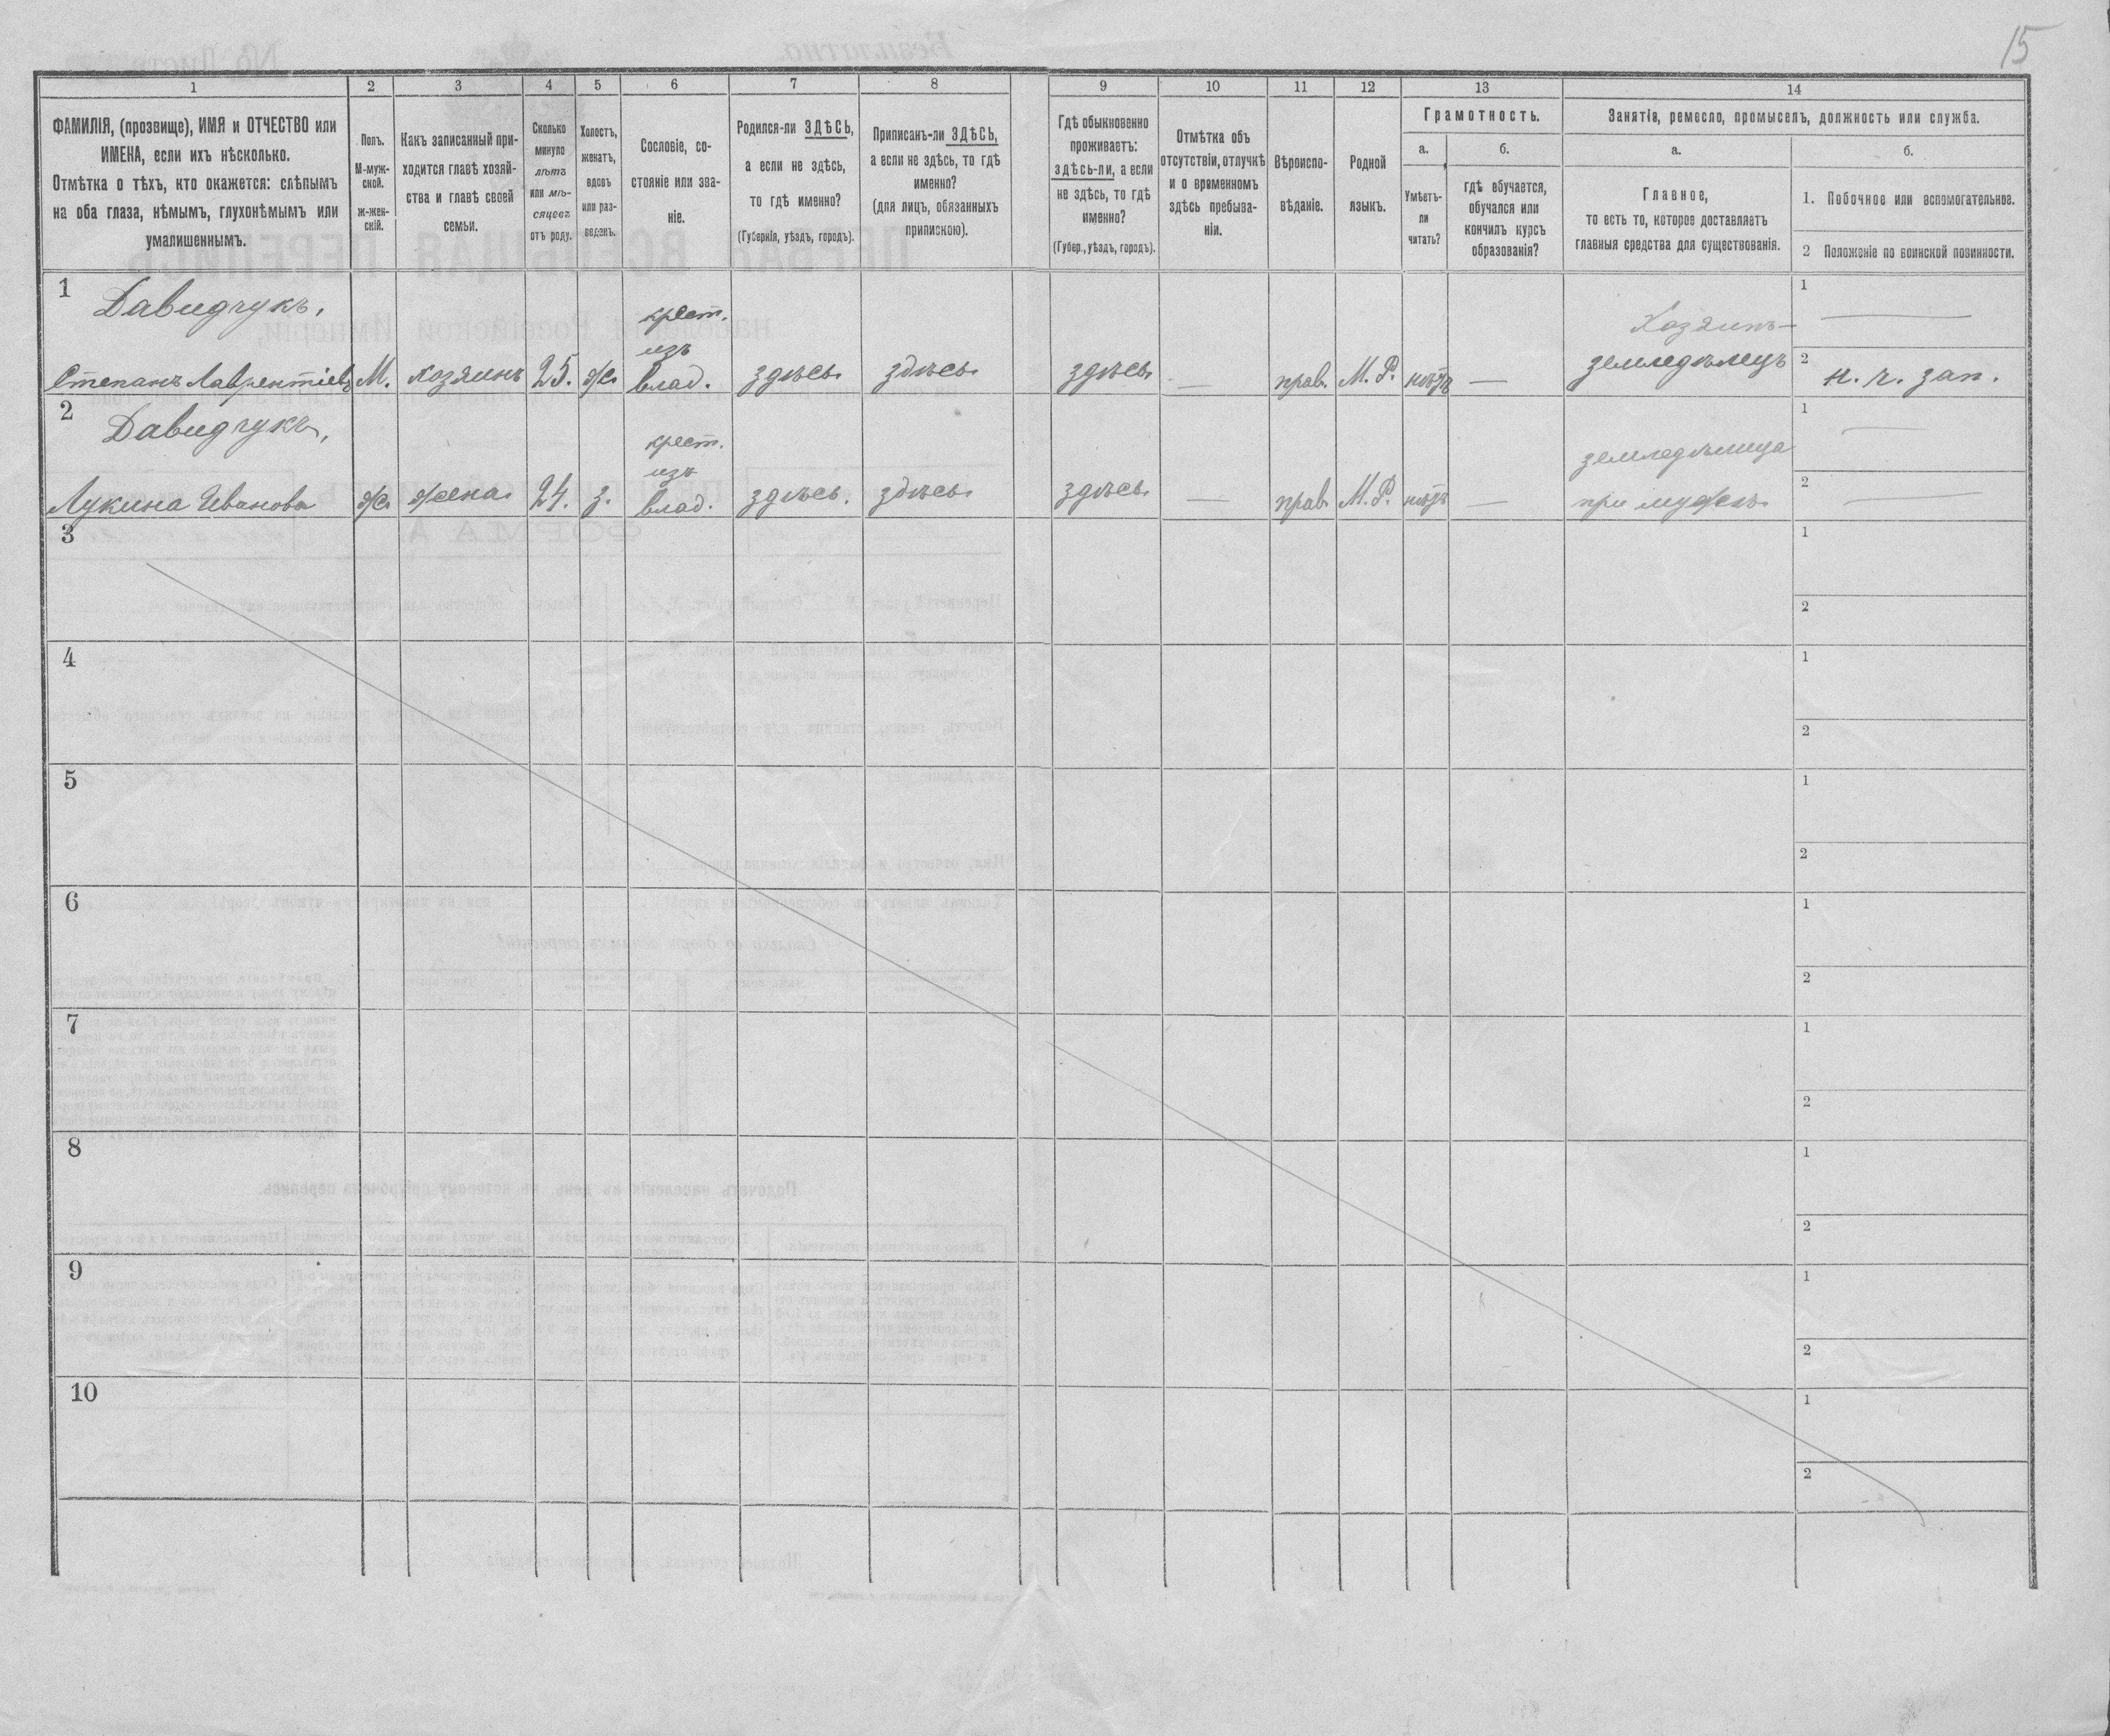 15
1 2 3 4 5 6 7 8 9 10 11 12 13 14
ФАМИЛІЯ, (прозвище), ИМЯ и ОТЧЕСТВО или
ИМЕНА, если ихъ нѣсколько.
Отмѣтка о тѣхъ, кто окажется: слѣпымъ
на оба глаза, нѣмымъ, глухонѣмымъ или
умалишеннымъ.
Полъ.
М-муж-
ской.
ж-жен-
скій.
Какъ записанный при-
ходится главѣ хозяй-
ства и главѣ своей
семьи.
Сколько
минуло
лѣтъ
или мѣ-
сяцевъ
отъ роду.
Холостъ,
женатъ,
вдовъ
или раз-
веденъ.
Сословіе, со-
стояніе или зва-
ніе.
Родился-ли ЗДѢСЬ,
а если не здѣсь,
то гдѣ именно?
(Губернія, уѣздъ, городъ).
Приписанъ-ли ЗДѢСЬ,
а если не здѣсь, то гдѣ
именно?
(для лицъ, обязанныхъ
припискою).
Гдѣ обыкновенно
проживаетъ:
здѣсь-ли, а если
не здѣсь, то гдѣ
именно?
(Губер., уѣздъ, городъ).
Отмѣтка объ
отсутствіи, отлучкѣ
и о временномъ
здѣсь пребыва-
ніи.
Вѣроиспо-
вѣданіе.
Родной
языкъ.
Грамотность.
а.
Умѣетъ-
ли
читать?
б.
гдѣ обучается,
обучался или
кончилъ курсъ
образованія?
Занятія, ремесло, промыселъ, должность или служба.
а.
Главное,
то есть то, которое доставляетъ
главныя средства для существованія.
б.
1. Побочное или вспомогательное.
2 Положеніе по воинской повинности.
1 Давидчукъ, крест. Хозяинъ- 1 —
изъ
Степанъ Лаврентіевъ М. хозяинъ 25. ж. влад. здѣсь здѣсь здѣсь — прав. М. Р. нѣтъ — земледѣлецъ 2 н. ч. зап.
2 Давидчукъ, крест. земледѣлица 1 —
изъ
Лукина Иванова ж. жена 24. з. влад. здѣсь. здѣсь здѣсь — прав. М. Р. нѣтъ — при мужѣ 2 —
3 1
2
4 1
2
5 1
2
6 1
2
7 1
2
8 1
2
9 1
2
10 1
2